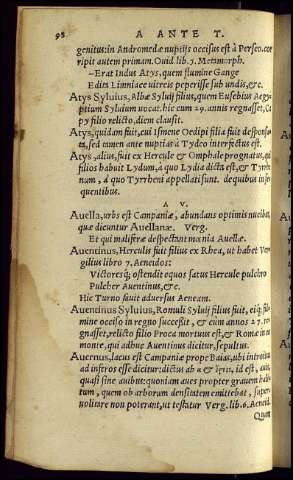 98 A ANTE T.
genitus: in Andromedæ nuptijs occisus est à Perseo. cor
ripit autem primam. Ouid. lib. 5. Metamorph.
–Erat Indus Atys, quem flumine Gange
Edita Limniace vitreis peperisse sub undis, &c.
Atys Syluius, Albæ Syluij filius, quem Eusebius Aegy-
ptium Syluium vocat. hic cum 29. annis regnasset, Ca
py filio relicto, diem clausit.
Atys, quidam fuit, cui Ismene Oedipi filia fuit desponsa
ta, sed tamen ante nuptias à Tydeo interfectus est.
Atys, alius, fuit ex Hercule & Omphale prognatus, qui
filios habuit Lydum, à quo Lydia dicta est, & Tyrrhe
num, à quo Tyrrheni appellati sunt. de quibus in se-
quentibus.
A V.
Auella, urbs est Campaniæ, abundans optimis nucibus,
quæ dicuntur Auellanæ. Verg.
Et quos maliferæ despectant mœnia Auellæ.
Auentinus, Herculis fuit filius ex Rhea, ut habet Ver
gilius libro 7. Aeneidos:
Victoresq; ostendit equos satus Hercule pulchro
Pulcher Auentinus, &c.
Hic Turno fauit aduersus Aeneam.
Auentinus Syluius, Romuli Syluij filius fuit, eiq; ful
mine occiso in regno successit, & cum annos 27. re
gnasset, relicto filio Proca mortuus est, & Romæ in eo
monte, qui adhuc Auentinus dicitur, sepultus.
Auernus, lacus est Campaniæ prope Baias, ubi introitus
ad inferos esse dicitur: dictus ab α & ὄρνις, id est, auis,
quasi sine auibus: quoniam aues propter grauem hali-
tum, quem ob arborum densitatem emittebat, super
uolitare non poterant, ut testatur Verg. lib. 6. Aeneid.
Quam